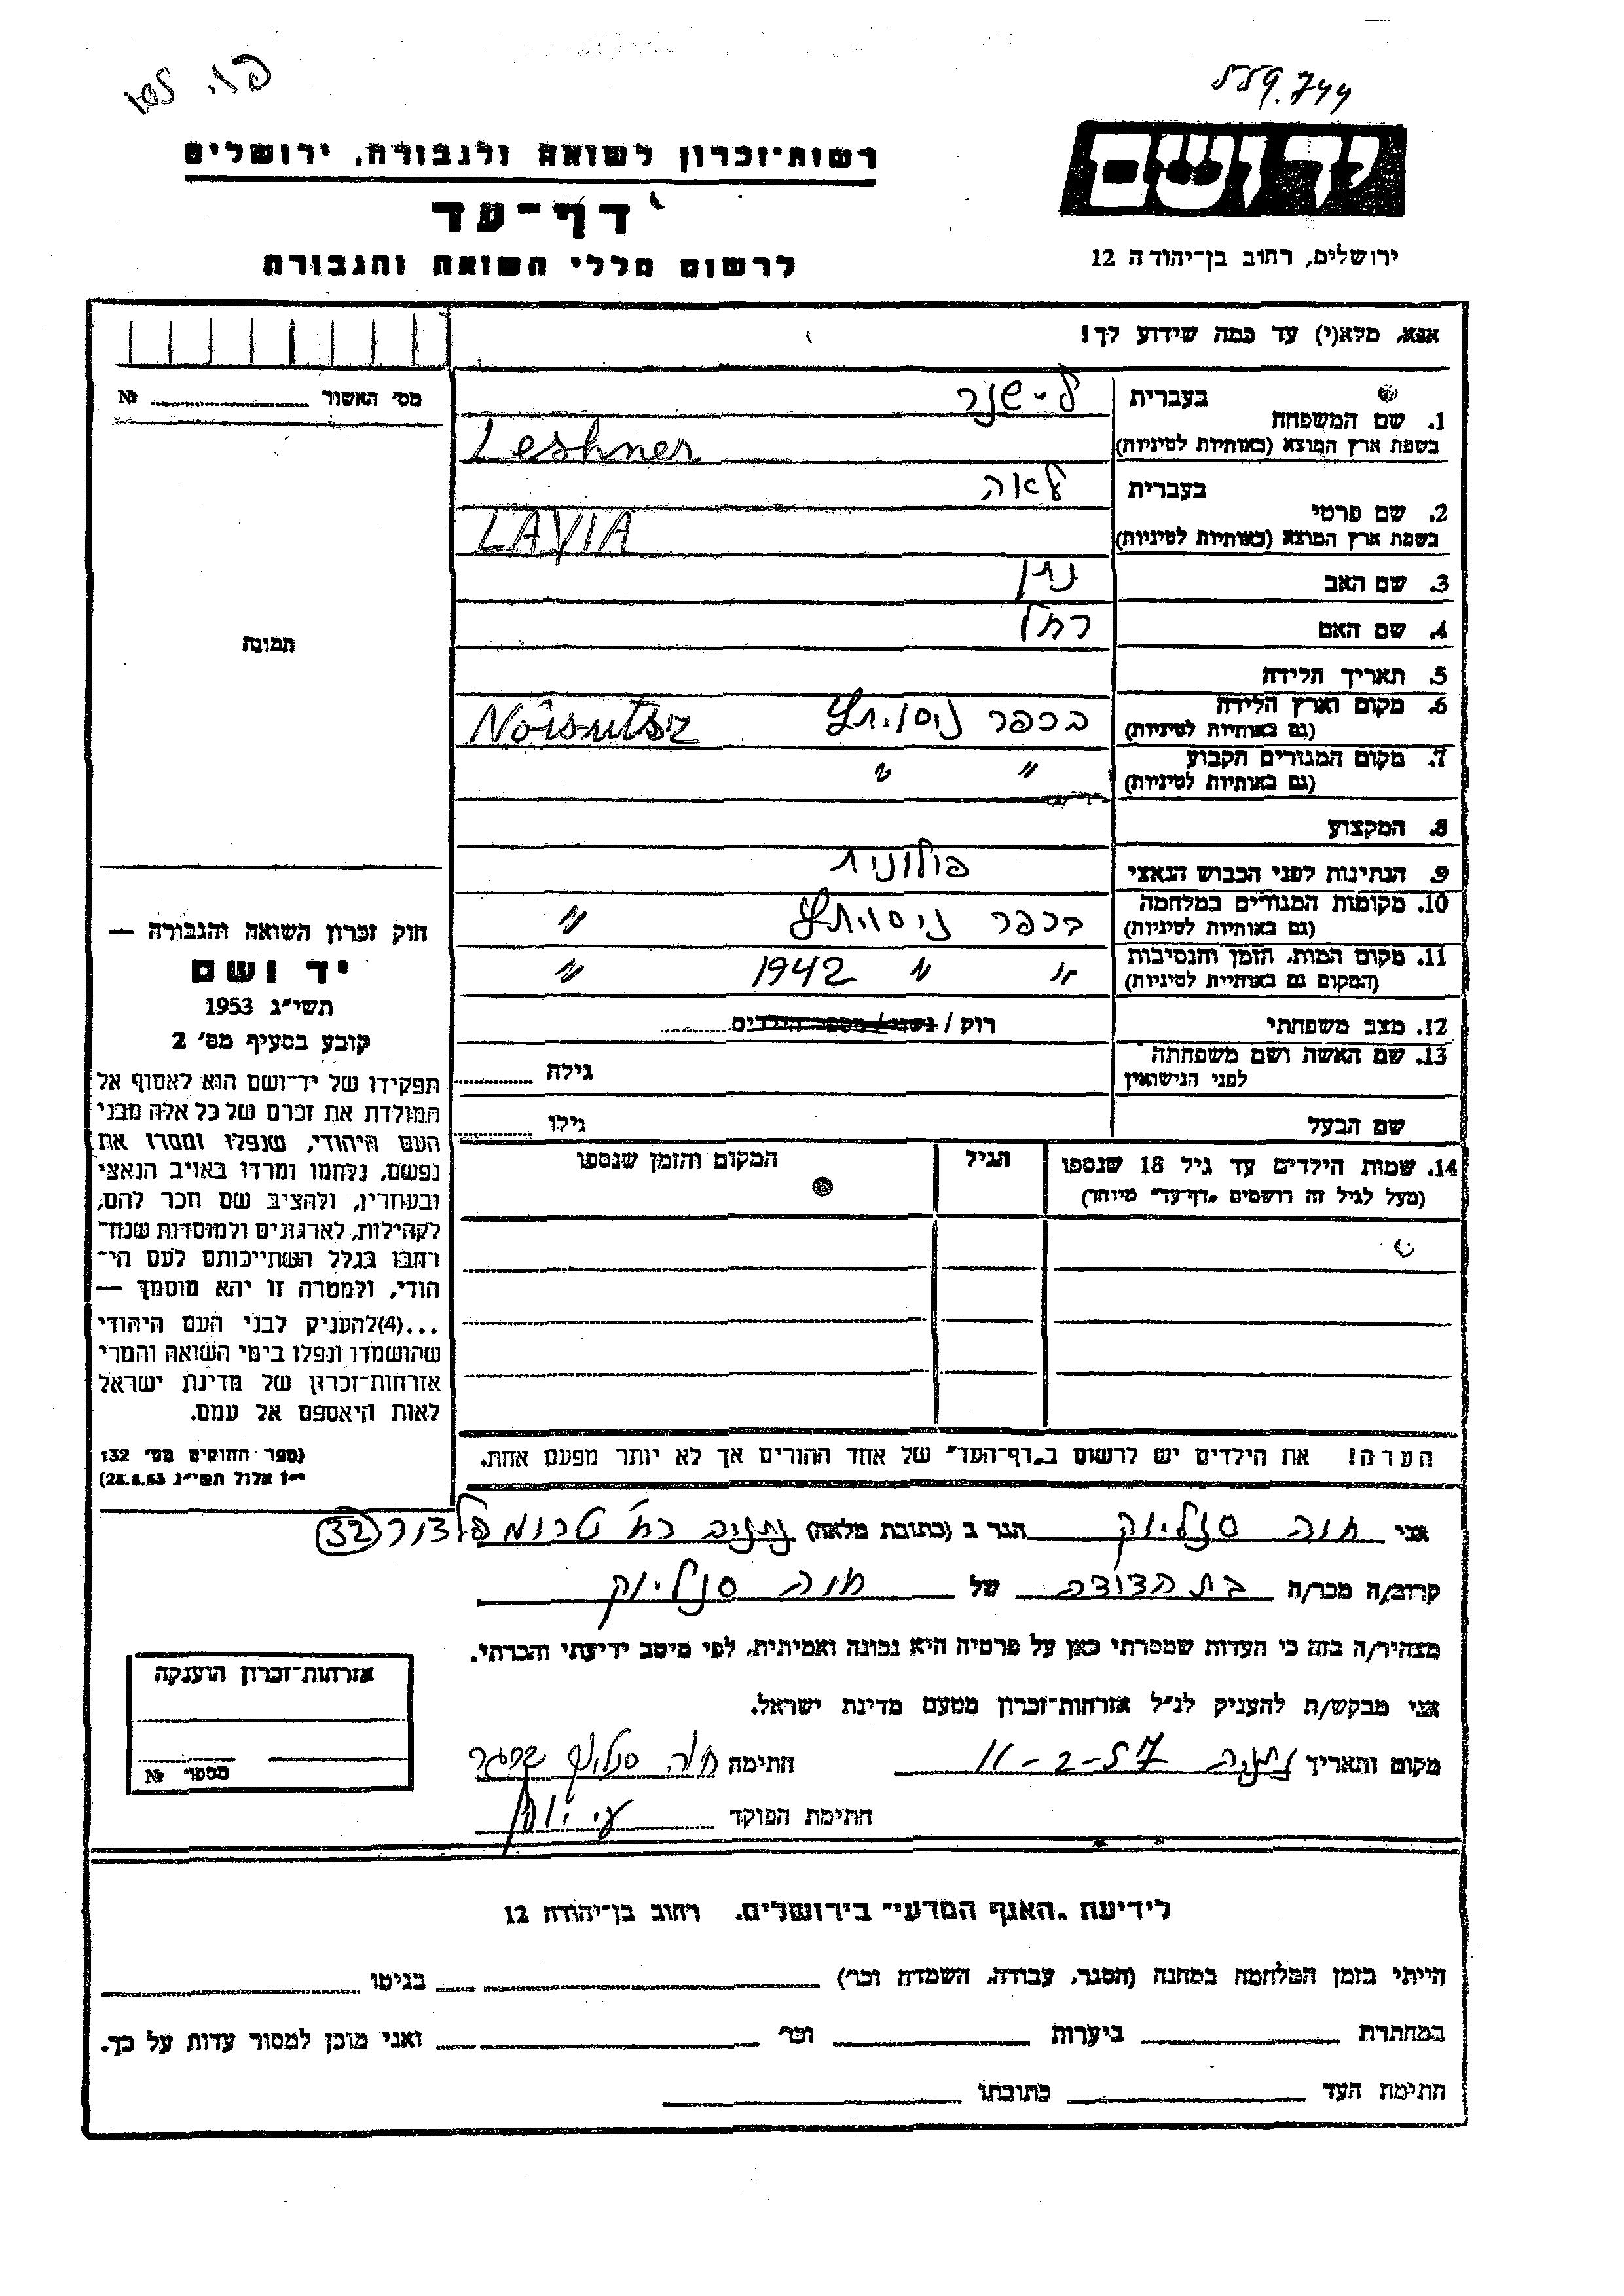 559.744
יד ושם
ירושלים, רחוב בן־יהודה 12
רשות־זכרון לשואה ולגבורה, ירושלים
דף־עד
לרשום חללי השואה והגבורה
אנא, מלא(י) עד כמה שידוע לך!
מס׳ האשור № 
1. שם המשפחה
בעברית
לישנר
בשפת ארץ המוצא (באותיות לטיניות)
Leshner
2. שם פרטי
בעברית
לאה
בשפת ארץ המוצא (באותיות לטיניות)
LAVIA
3. שם האב נתן
4. שם האם רחל
5. תאריך הלידה
6. מקום וארץ הלידה
(גם באותיות לטיניות)
בכפר Noisutsz
7. מקום המגורים הקבוע
(גם באותיות לטיניות)
" "
8. המקצוע
9. הנתינות לפני הכבוש הנאצי פולונית
10. מקומות המגורים במלחמה
(גם באותיות לטיניות)
בכפר "
11. מקום המות, הזמן והנסיבות
(המקום גם באותיות לטיניות)
" " 1942 "
12. מצב משפחתי רוק / נשוי / מספר הילדים
13. שם האשה ושם משפחתה
לפני הנישואין
גילה
שם הבעל גילו
14. שמות הילדים עד גיל 18 שנספו
(מעל לגיל זה רושמים „דף־עד״ מיוחד)
הגיל
המקום והזמן שנספו
הערה! את הילדים יש לרשום ב„דף־העד״ של אחד ההורים אך לא יותר מפעם אחת.
תמונה
חוק זכרון השואה והגבורה —
יד ושם
תשי״ג 1953
קובע בסעיף מס׳ 2
תפקידו של יד־ושם הוא לאסוף אל
המולדת את זכרם של כל אלה מבני
העם היהודי, שנפלו ומסרו את
נפשם, נלחמו ומרדו באויב הנאצי
ובעוזריו, ולהציב שם וזכר להם,
לקהילות, לארגונים ולמוסדות שנח־
רבו בגלל השתייכותם לעם הי־
הודי, ולמטרה זו יהא מוסמך —
...(4) להעניק לבני העם היהודי
שהושמדו ונפלו בימי השואה והמרי
אזרחות־זכרון של מדינת ישראל
לאות היאספם אל עמם.
(ספר החוקים מס׳ 132
י״ז אלול תשי״ג 28.8.53)
אני חוה הגר ב (כתובת מלאה) נתניה רח׳ טרומפלדור 32
קרוב/ה מכר/ה בת הדודה של חוה
מצהיר/ה בזה כי העדות שמסרתי כאן על פרטיה היא נכונה ואמיתית, לפי מיטב ידיעתי והכרתי.
אני מבקש/ת להעניק לנ״ל אזרחות־זכרון מטעם מדינת ישראל.
מקום ותאריך נתניה 11-2-57 חתימה חוה
חתימת הפוקד
אזרחות־זכרון הוענקה
מספר №
לידיעת „האגף המדעי״ בירושלים. רחוב בן־יהודה 12
הייתי בזמן המלחמה במחנה (הסגר, עבודה, השמדה וכו׳) בגיטו
במחתרת ביערות וכו׳ ואני מוכן למסור עדות על כך.
חתימת העד כתובתו